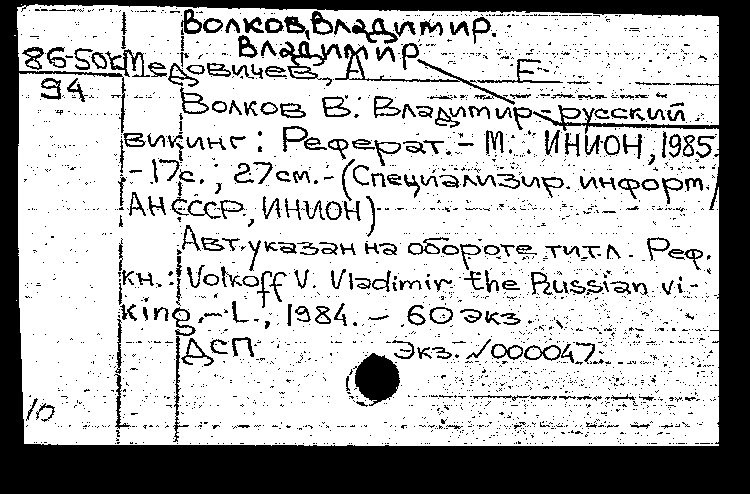 Волков, Владимир.
Владимир
86-50к Медовичев, А. Е.
94
Волков В. Владимир - русский
викинг: Реферат. - М.: ИНИОН, 1985.
- 17с.; 27см. - (Специализир. информ./
АН СССР, ИНИОН)
Авт. указан на обороте тит. л. Реф.
кн.: Volkoff V. Vladimir the Russian vi-
king. - L., 1984. - 60 экз.
ДСП Экз. №000047.
10